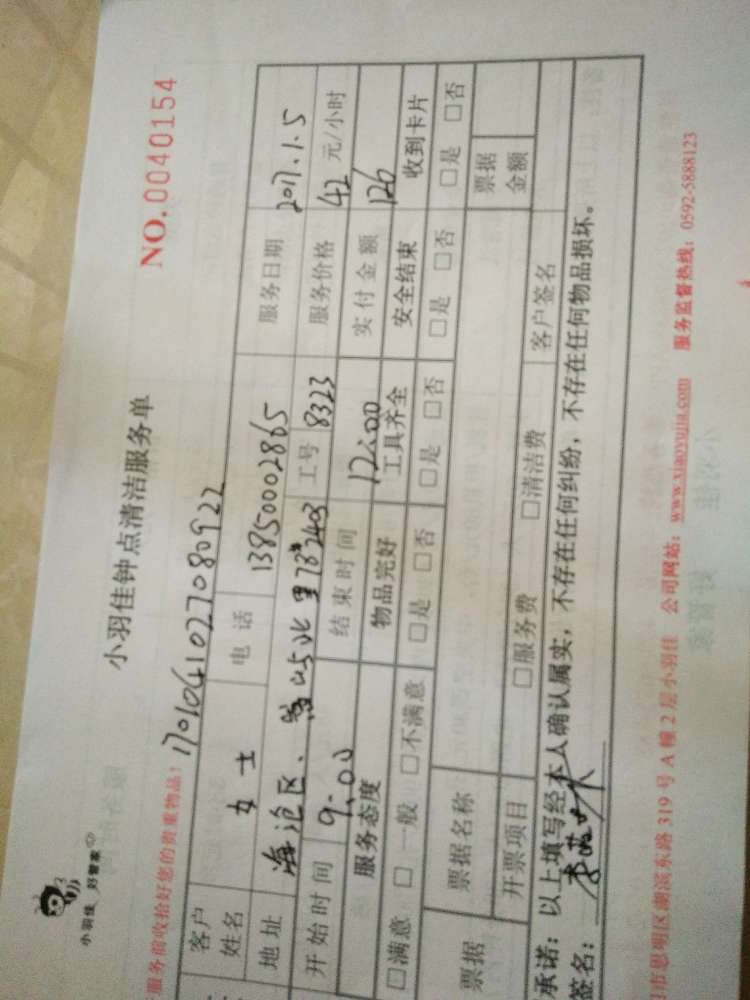 小羽佳 好管家
小羽佳钟点清洁服务单
NO.0040154
服务前收拾好您的贵重物品!
1701041027080922
客户姓名 女士 电话 13850002865 服务日期 2017.1.5
地址 海沧区、 北里78#2403 工号 8323 服务价格 42 元/小时
开始时间 9:00 结束时间 12:00 实付金额 126
服务态度 物品完好 工具齐全 安全结束 收到卡片
□满意 □一般 □不满意 □是 □否 □是 □否 □是 □否 □是 □否
票据 票据名称 票据金额
开票项目 □服务费 □清洁费 客户签名
承诺：以上填写经本人确认属实，不存在任何纠纷，不存在任何物品损坏。
签名：
市思明区湖滨东路 319 号 A 幢 2 层小羽佳 公司网站：www.xiaoyujia.com 服务监督热线：0592-5888123